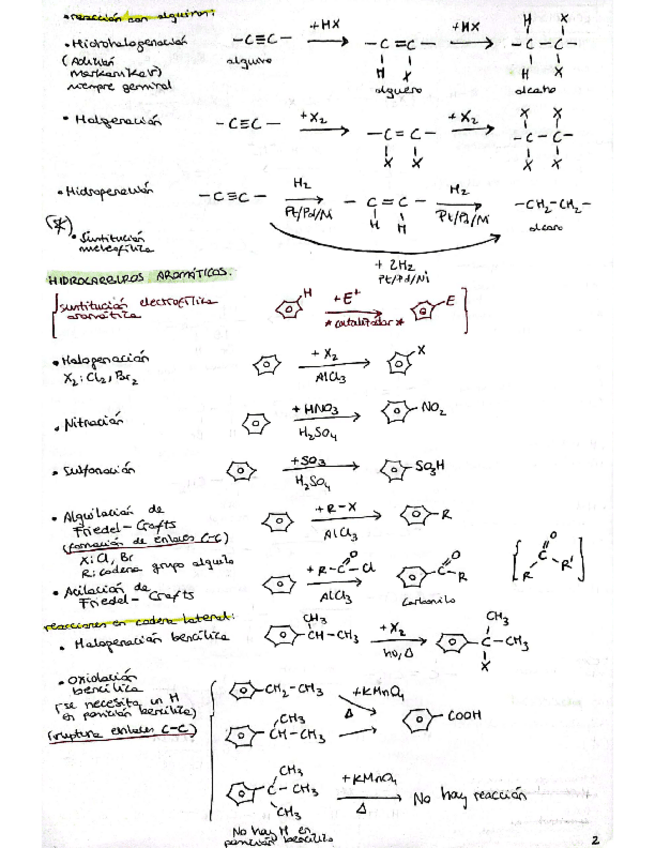 • reacción con alquinos:
• Hidrohalogenación
(Adición
Markovnikov)
siempre geminal
-C≡C- +HX -C=C- +HX -C-C-
H X
H X
H X
alquino alqueno alcano
• Halogenación -C≡C- +X₂ -C=C- +X₂ -C-C-
X X
X X
X X
• Hidrogenación -C≡C- H₂ Pt/Pd/Ni -C=C- H₂ Pt/Pd/Ni -CH₂-CH₂-
H H
alcano
(*)
• Sustitución
nucleofílica
+ 2H₂
Pt/Pd/Ni
HIDROCARBUROS AROMÁTICOS.
[sustitución electrofílica
aromática
H +E⁺ E]
*catalizador*
• Halogenación + X₂ X
X₂: Cl₂, Br₂ AlCl₃
• Nitración + HNO₃ NO₂
H₂SO₄
• Sulfonación +SO₃ SO₃H
H₂SO₄
• Alquilación de
Friedel-Crafts
(formación de enlaces C-C)
X: Cl, Br
R: cadena grupo alquilo
+ R-X R
AlCl₃
• Acilación de
Friedel-Crafts
+ R-C-Cl
O
AlCl₃
O
C-R
Carbonilo
O
C
R R'
reacciones en cadena lateral:
• Halogenación bencílica
CH₃
CH-CH₃ +X₂
hν, Δ
CH₃
C-CH₃
X
• Oxidación
bencílica
(se necesita un H
en posición bencílica)
(ruptura enlaces C-C)
CH₂-CH₃ +KMnO₄
Δ
COOH
CH₃
CH-CH₃
CH₃
C-CH₃
CH₃
+KMnO₄
Δ
No hay reacción
No hay H en
posición bencílica
2